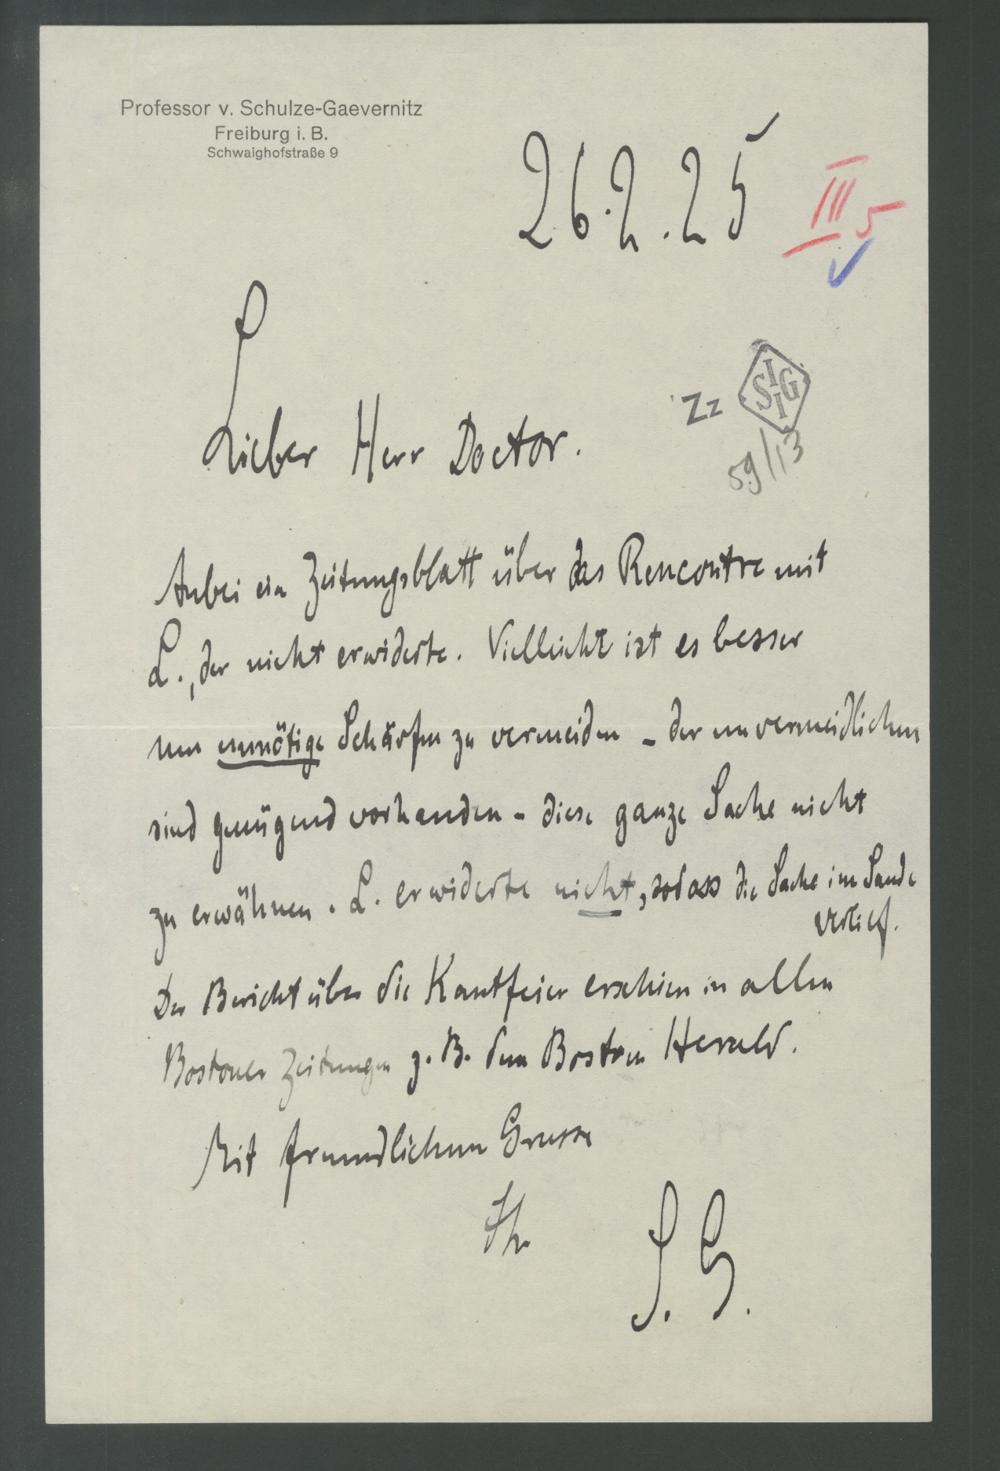 Professor v. Schulze-Gaevernitz
Freiburg i. B.
Schwaighofstraße 9
26.2.25
III 5
Zz SIIG
59/13
Lieber Herr Doctor.
Anbei ein Zeitungsblatt über das Rencontre mit
L., der nicht erwiderte. Vielleicht ist es besser
um unnötige Schärfen zu vermeiden - der unvermeidlichen
sind genügend vorhanden - diese ganze Sache nicht
zu erwähnen. L. erwiderte nicht, sodass die Sache im Sande
verlief.
Der Bericht über die Kantfeier erschien in allen
Bostoner Zeitungen z. B. dem Boston Herald.
Mit freundlichem Grusse
Ihr
S. G.